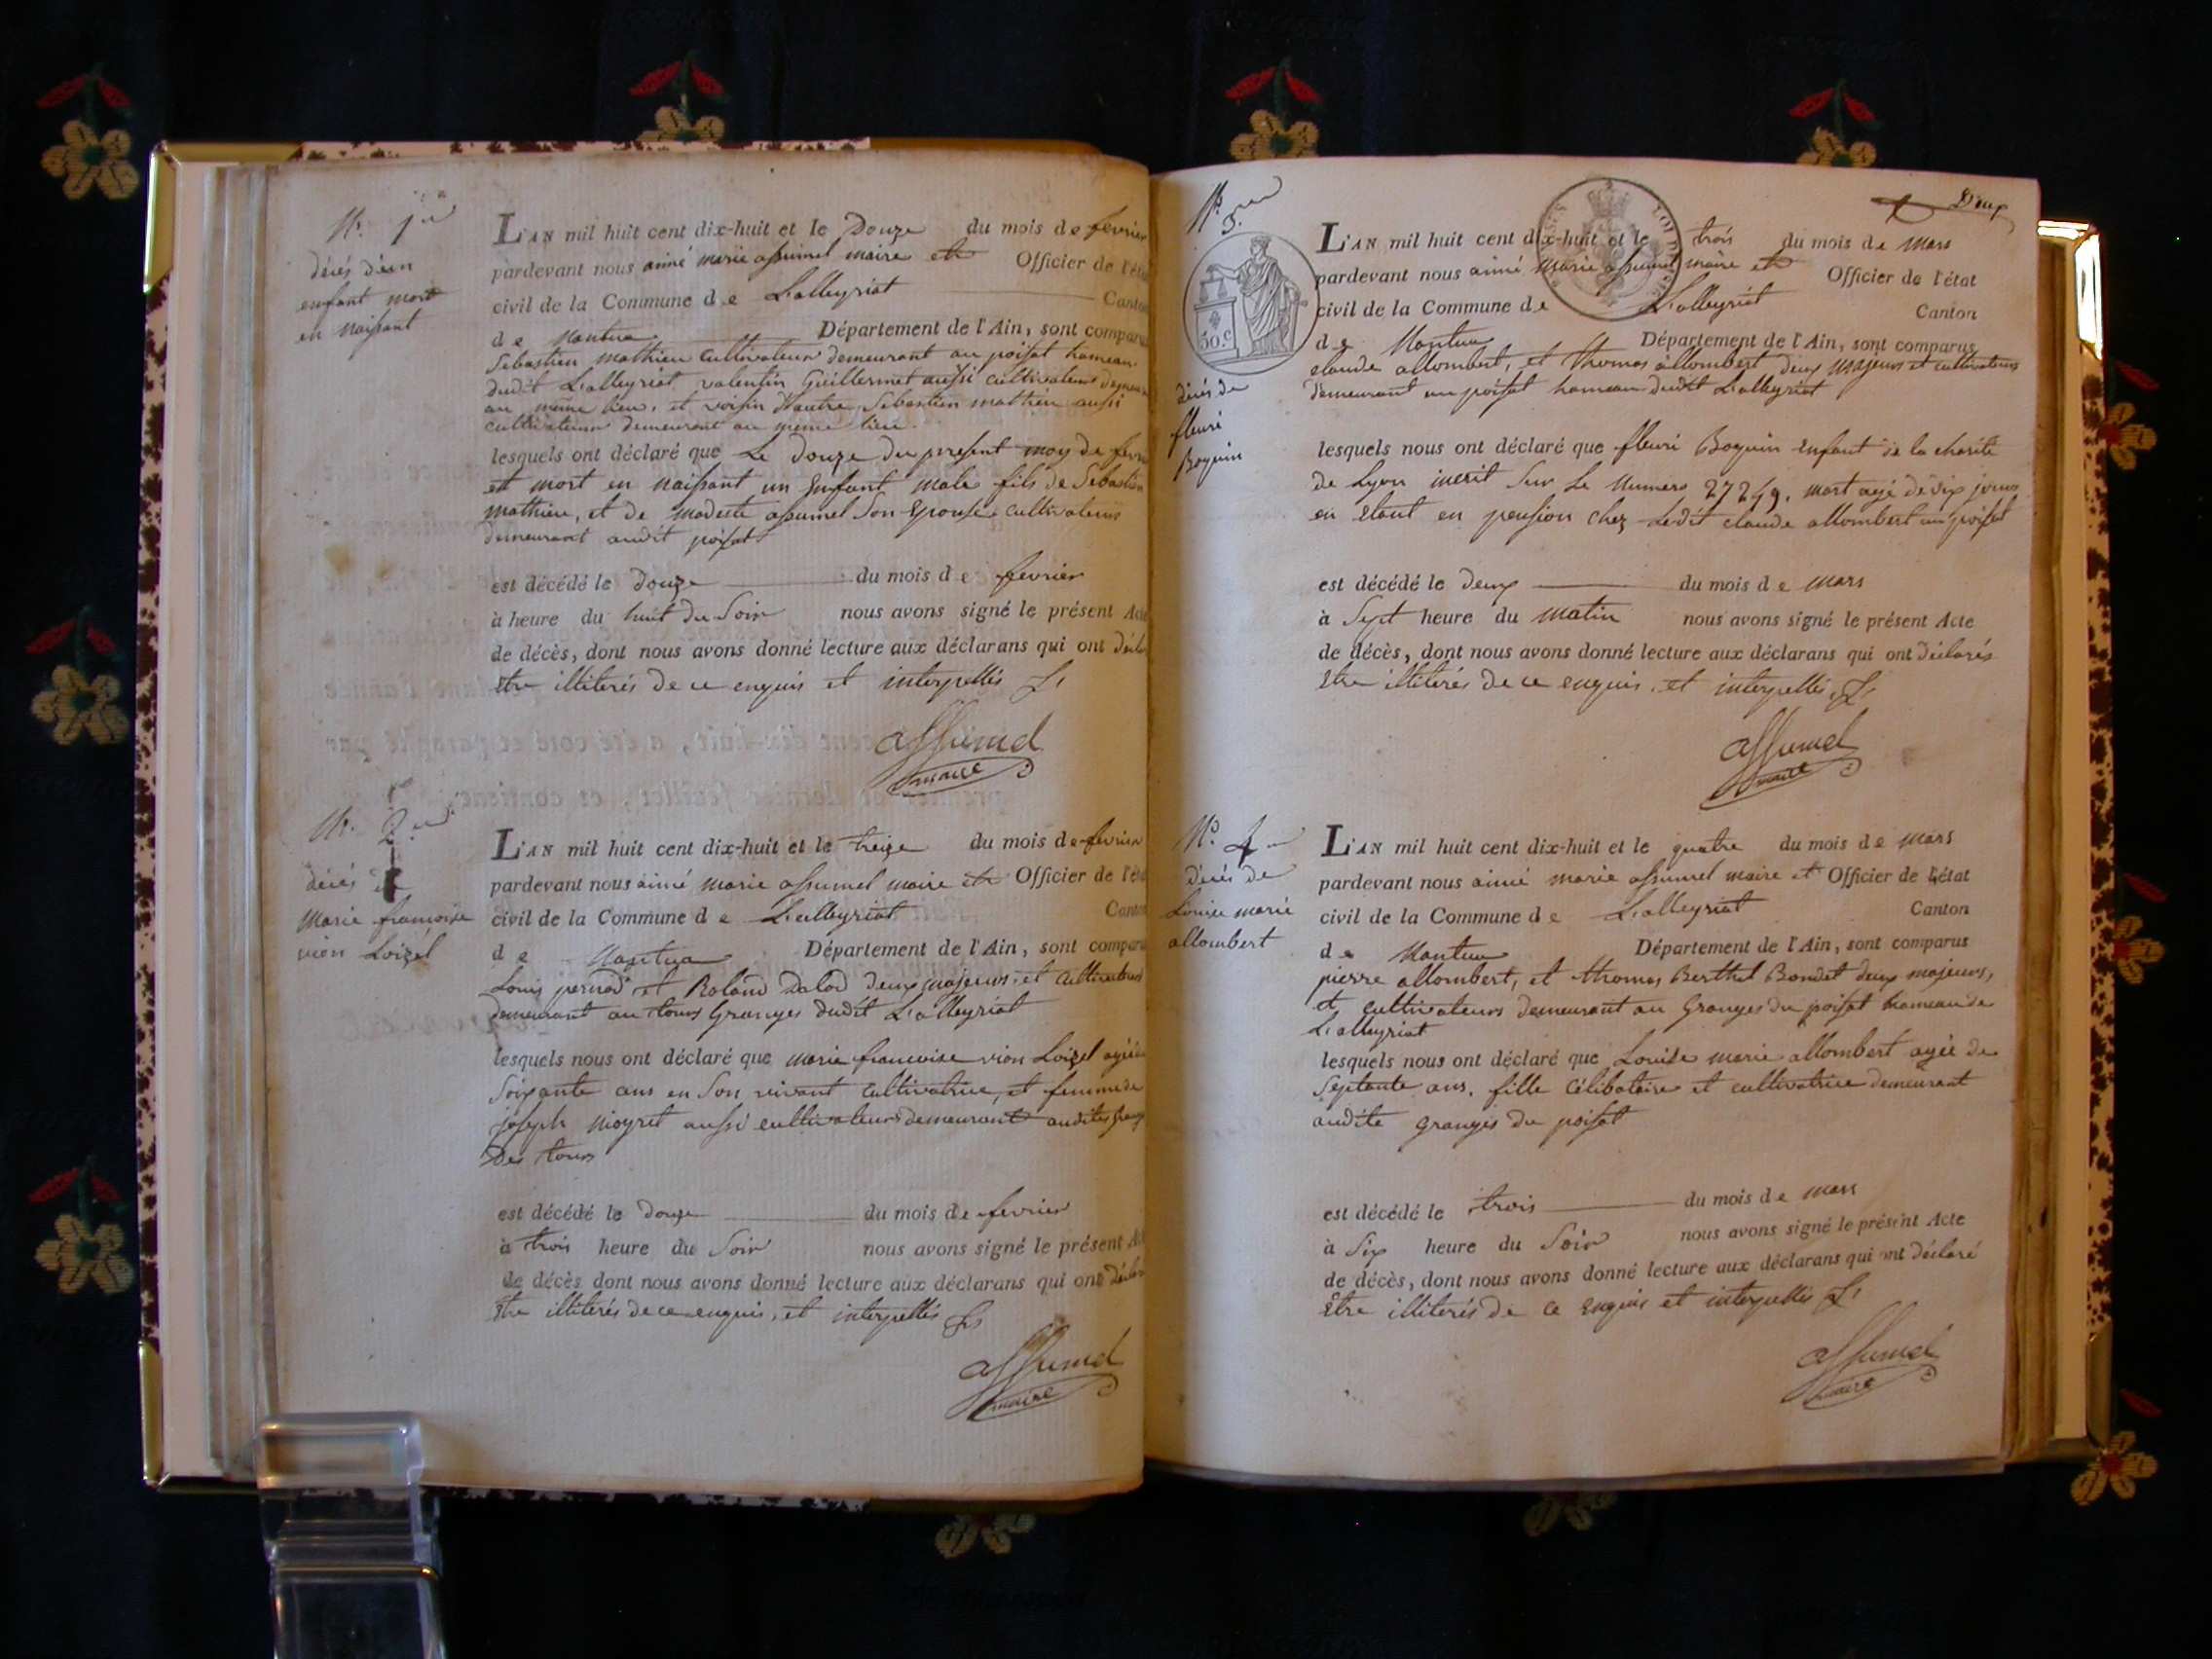 N.º 1er
décés d'un
enfant mort
en naissant
L'AN mil huit cent dix-huit et le Douze du mois de fevrier
pardevant nous aimé marie assumel maire et Officier de l'état
civil de la Commune de Lalleyriat Canton
de Nantua Département de l'Ain, sont comparus
Sebastien mathieu cultivateur demeurant au poisat hameau
dudit Lalleyriat valentin Guillermet aussi cultivateur
au même lieu, et voisin Sebastien mathieu aussi
cultivateur demeurant au même lieu
lesquels ont déclaré que Le Douze du present moy de
est mort en naissant un Enfant male fils de Sebastien
mathieu, et de modeste assumel Son Epouse cultivateurs
demeurant audit poisat
est décédé le Douze du mois de fevrier
à heure du huit du Soir nous avons signé le présent Acte
de décès, dont nous avons donné lecture aux déclarans qui ont
Etre illiterés de ce enquis et interpellés
assumel
maire
N.º 2
décés de
Marie francoise
vion Loizel
L'AN mil huit cent dix-huit et le treize du mois de fevrier
pardevant nous aimé marie assumel maire et Officier de l'état
civil de la Commune de Lalleyriat Canton
de Nantua Département de l'Ain, sont comparus
Louis et Roland Dalod deux majeurs, et cultivateurs
demeurant au tours Granges dudit Lalleyriat
lesquels nous ont déclaré que marie francoise vion Loizel agée
Soixante ans en Son vivant cultivatrice, et femme de
joseph moyret aussi cultivateur demeurant audites
Des tours
est décédé le Douze du mois de fevrier
à trois heure du Soir nous avons signé le présent
de décès dont nous avons donné lecture aux déclarans qui ont
Etre illiterés de ce enquis, et interpellés
assumel
maire
Deux
N.º 3
30.C
décés de
fleuri
Boyuin
L'AN mil huit cent dix-huit et le trois du mois de mars
pardevant nous aimé marie assumel maire et Officier de l'état
civil de la Commune de Lalleyriat Canton
de Nantua Département de l'Ain, sont comparus
claude allombert, et thomas allombert deux majeurs et cultivateurs
demeurant au poisat hameau dudit Lalleyriat
lesquels nous ont déclaré que fleuri Boyuin Enfant de la charité
de Lyon inscrit Sur Le Numero mort agé de dix jours
en Etant en pension chez Ledit claude allombert au poisat
est décédé le deux du mois de mars
à Sept heure du matin nous avons signé le présent Acte
de décès, dont nous avons donné lecture aux déclarans qui ont déclarés
Etre illiterés de ce enquis, et interpellés
assumel
maire
N.º 4
décés de
Louise marie
allombert
L'AN mil huit cent dix-huit et le quatre du mois de mars
pardevant nous aimé marie assumel maire et Officier de l'état
civil de la Commune de Lalleyriat Canton
de Nantua Département de l'Ain, sont comparus
pierre allombert, et thomas Berthet Bondet deux majeurs,
et cultivateurs demeurant au Granges du poisat hameau de
Lalleyriat
lesquels nous ont déclaré que Louise marie allombert agée de
Septante ans, fille célibataire et cultivatrice demeurant
audite granges du poisat
est décédé le trois du mois de mars
à Six heure du Soir nous avons signé le présent Acte
de décès, dont nous avons donné lecture aux déclarans qui ont déclaré
Etre illiterés de ce enquis et interpellés
assumel
maire